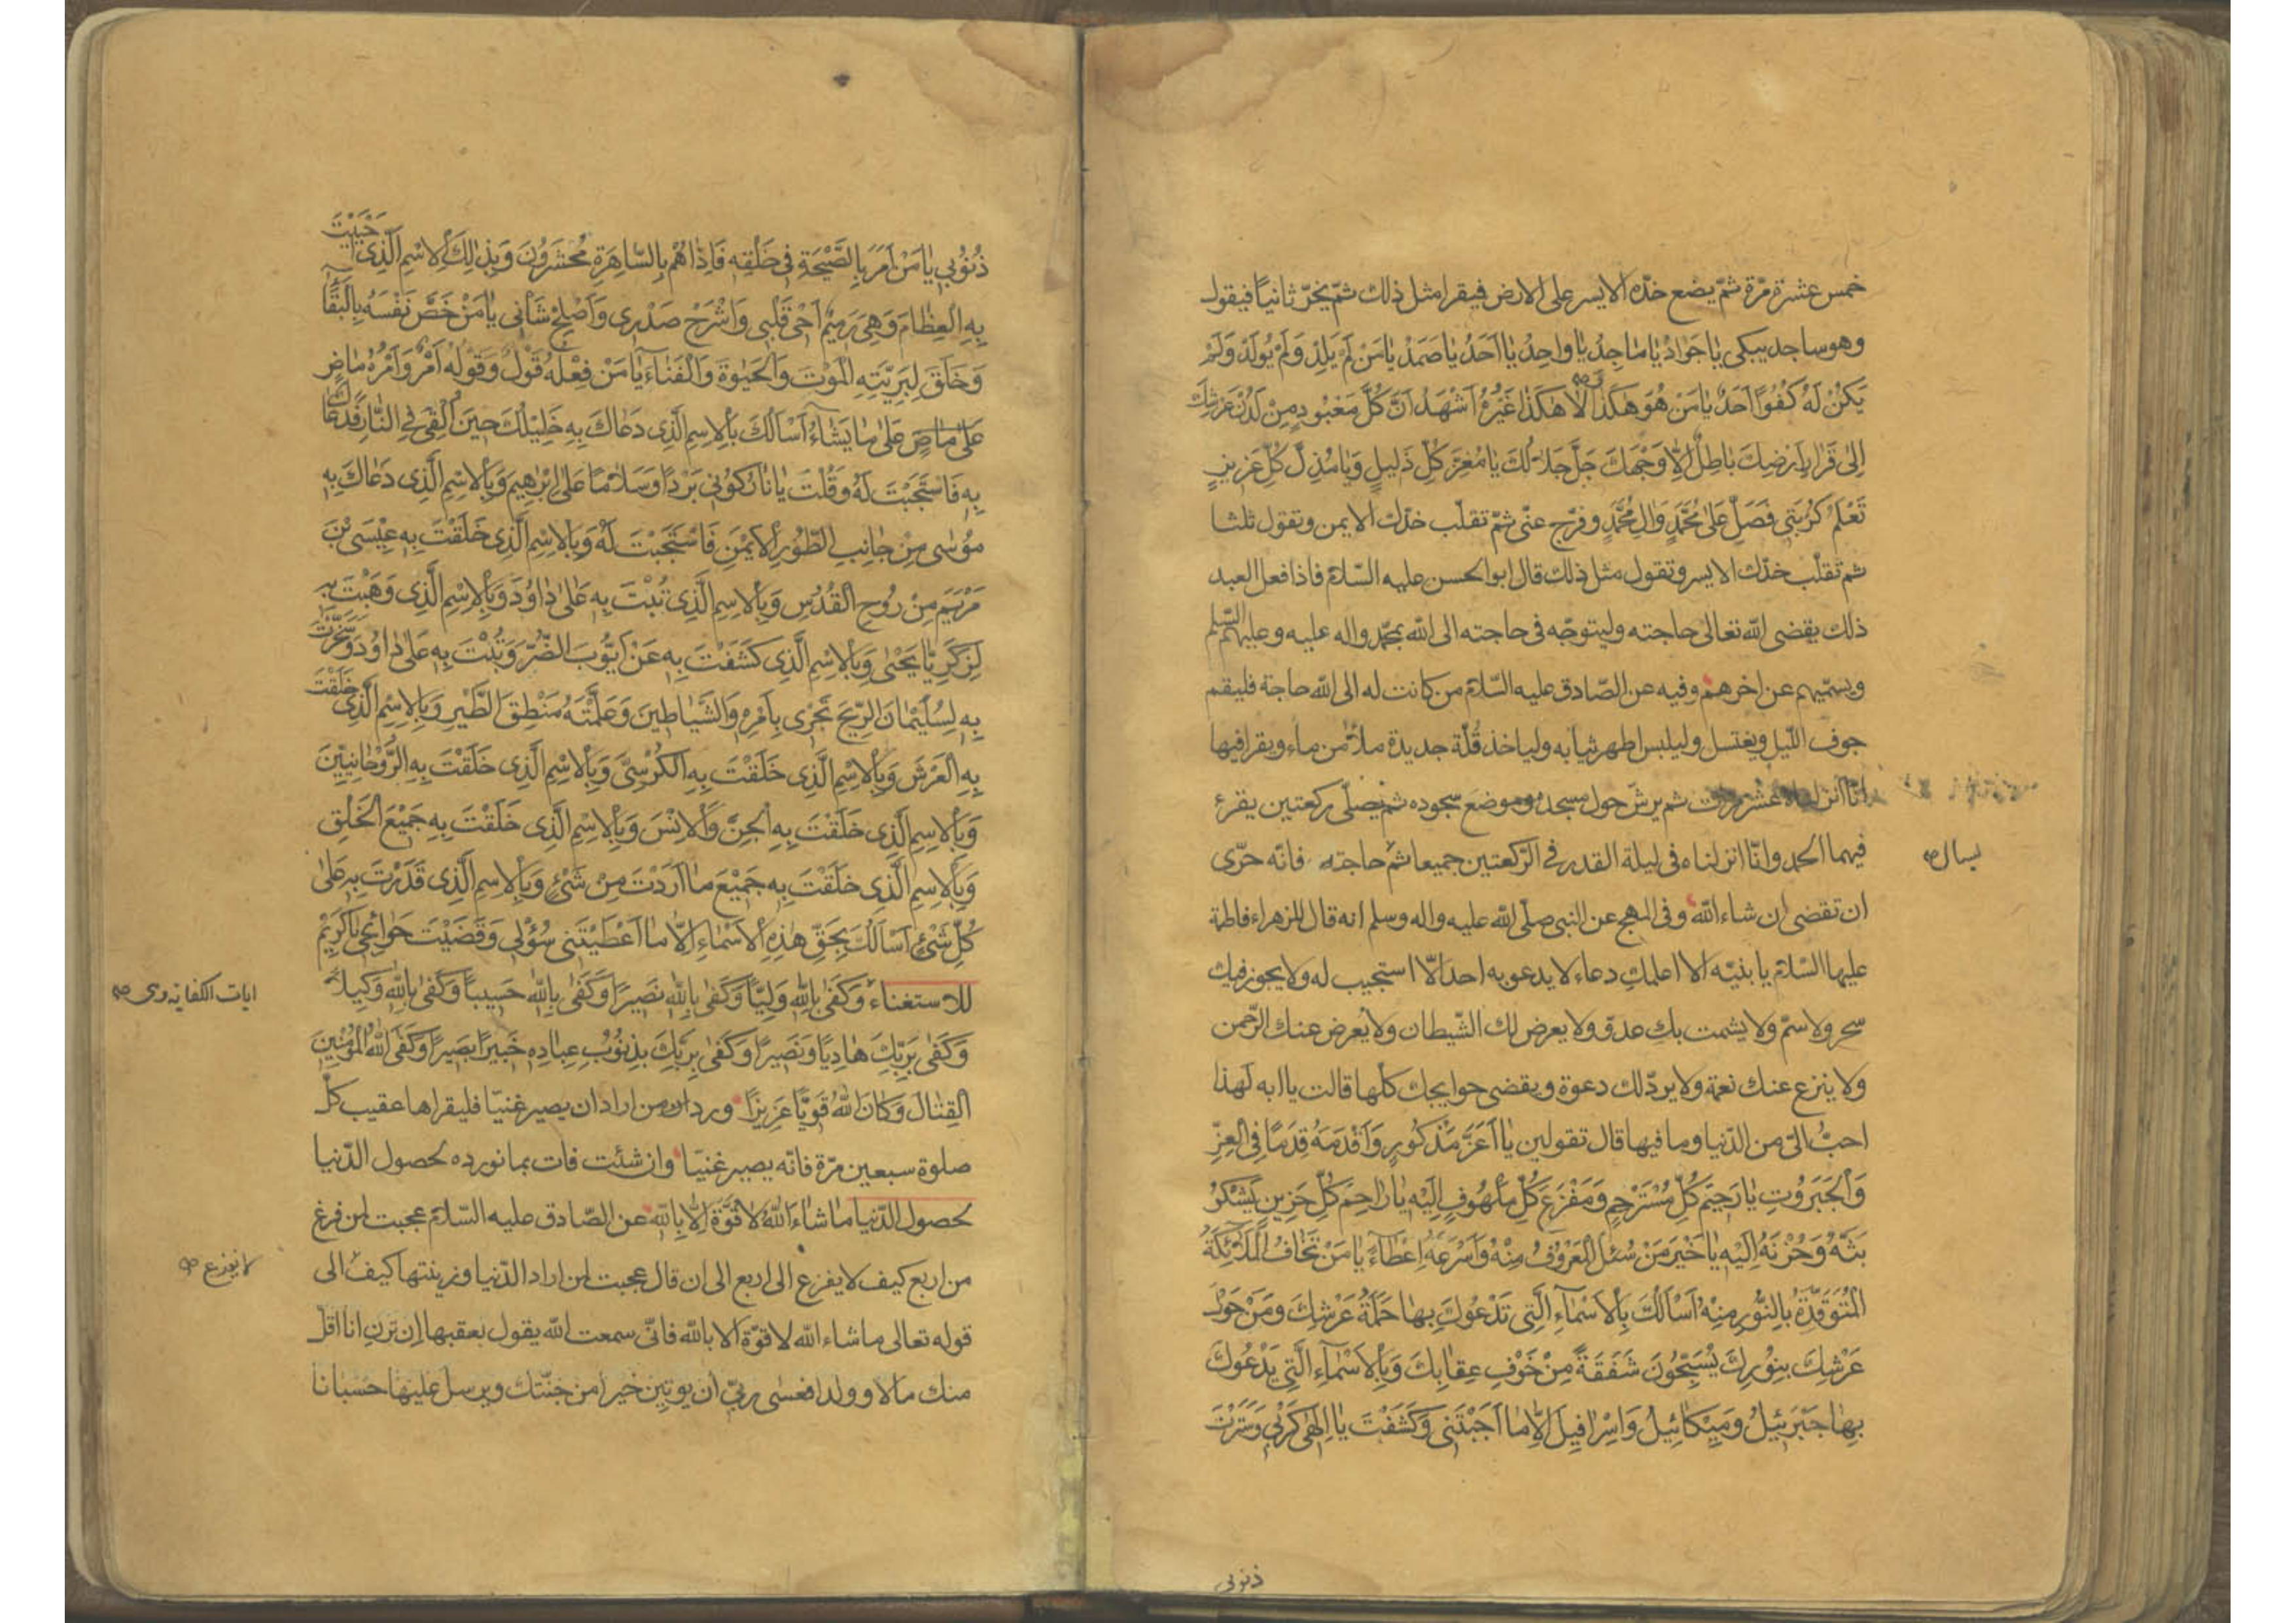 خمس عشرة مرّة ثمّ يضع خدّه الايسر على الارض فيقرا مثل ذلك ثمّ يخرّ ثانياً فيقول
وهو ساجد يبكى يٰا جَوٰادُ يٰا مٰاجِدُ يٰا وٰاحِدُ يٰا اَحَدُ يٰا صَمَدُ يٰا مَنْ لَمْ يَلِدْ وَلَمْ يُولَدْ وَلَمْ
يَكُنْ لَهُ كُفُوًا اَحَدٌ يٰا مَنْ هُوَ هٰكَذٰا لٰا هٰكَذٰا غَيْرُهُ اَشْهَدُ اَنَّ كُلَّ مَعْبُودٍ مِنْ لَدُنْ عَرْشِكَ
اِلىٰ قَرٰارِ اَرْضِكَ بٰاطِلٌ اِلّٰا وَجْهَكَ جَلَّ جَلٰالُكَ يٰا مُعِزَّ كُلِّ ذَلِيلٍ وَيٰا مُذِلَّ كُلِّ عَزِيزٍ
تَعْلَمُ كُرْبَتِى فَصَلِّ عَلىٰ مُحَمَّدٍ وَاٰلِ مُحَمَّدٍ وفرّج عنّى ثمّ تقلّب خدّك الايمن وتقول ثلثا
ثم تقلّب خدّك الايسر وتقول مثل ذلك قال ابو الحسن عليه السّلام فاذا فعل العبد
ذلك يقضى الله تعالى حاجته وليتوجّه فى حاجته الى الله بمحمّد واله عليه وعليهم السّلم
ويسمّيهم عن اخرهم وفيه عن الصّادق عليه السّلام من كانت له الى الله حاجة فليقم
جوف اللّيل ويغتسل وليلبس اطهر ثيابه ولياخذ قُلّة جديدة ملاٴ من ماء ويقرا فيها
انّا انزلناه عشر مرّات ثم يرشّ حول مسجده وموضع سجوده ثم يصلّى ركعتين يقرء
فيهما الحمد وانّا انزلناه فى ليلة القدر فى الرّكعتين جميعا ثم حاجته فانّه حرّى
يسال صح
ان تقضى ان شاء الله وفى المهج عن النبى صلّى الله عليه واله وسلم انه قال للزهراء فاطمة
عليها السّلام يا بنيّه الا اعلمك دعاء لا يدعو به احد الّا استجيب له ولا يجوز فيك
سحر ولا سمّ ولا يشمت بك عدوّ ولا يعرض لك الشّيطان ولا يُعرض عنك الرّحمن
ولا ينزع عنك نعمة ولا يردّ لك دعوة ويقضى حوايجك كلّها قالت يا ابه لهذا
احبّ الىّ من الدّنيا وما فيها قال تقولين يٰا اَعَزَّ مَذْكُورٍ وَاَقْدَمَهُ قِدَمًا فِى الْعِزِّ
وَالْجَبَرُوتِ يٰا رَحِيمَ كُلِّ مُسْتَرْحِمٍ وَمَفْزَعَ كُلِّ مَلْهُوفٍ اِلَيْهِ يٰا رٰاحِمَ كُلِّ حَزِينٍ يَشْكُو
بَثَّهُ وَحُزْنَهُ اِلَيْهِ يٰا خَيْرَ مَنْ سُئِلَ الْمَعْرُوفُ مِنْهُ وَاَسْرَعَهُ اِعْطٰاءً يٰا مَنْ تَخٰافُ الْمَلٰائِكَةُ
الْمُتَوَقِّدَةُ بِالنُّورِ مِنْهُ اَسْاَلُكَ بِالْاَسْمٰاءِ الَّتِى تَدْعُوكَ بِهٰا حَمَلَةُ عَرْشِكَ وَمَنْ حَوْلَ
عَرْشِكَ بِنُورِكَ يُسَبِّحُونَ شَفَقَةً مِنْ خَوْفِ عِقٰابِكَ وَبِالْاَسْمٰاءِ الَّتِى يَدْعُوكَ
بِهٰا جَبْرَئِيلُ وَمِيكٰائِيلُ وَاِسْرٰافِيلُ اِلّٰا مٰا اَجَبْتَنِى وَكَشَفْتَ يٰا اِلٰهِى كُرْبَتِى وَسَتَرْتَ
ذنوبى
ذُنُوبِى يٰا مَنْ اَمَرَ بِالصَّيْحَةِ فِى خَلْقِهِ فَاِذٰا هُمْ بِالسّٰاهِرَةِ مُحْشَرُونَ وَبِذٰلِكَ الْاِسْمِ الَّذِى اَحْيَيْتَ
بِهِ الْعِظٰامَ وَهِىَ رَمِيمٌ اَحْىِ قَلْبِى وَاشْرَحْ صَدْرِى وَاَصْلِحْ شَأْنِى يٰا مَنْ خَصَّ نَفْسَهُ بِالْبَقٰاءِ
وَخَلَقَ لِبَرِيَّتِهِ الْمَوْتَ وَالْحَيٰوةَ وَالْفَنٰاءَ يٰا مَنْ فِعْلُهُ قَوْلٌ وَقَوْلُهُ اَمْرٌ وَاَمْرُهُ مٰاضٍ
عَلىٰ مٰا يَشٰاءُ اَسْاَلُكَ بِالْاِسْمِ الَّذِى دَعٰاكَ بِهِ خَلِيلُكَ حِينَ اُلْقِىَ فِى النّٰارِ فَدَعٰاكَ
بِهِ فَاسْتَجَبْتَ لَهُ وَقُلْتَ يٰا نٰارُ كُونِى بَرْدًا وَسَلٰامًا عَلىٰ اِبْرٰهِيمَ وَبِالْاِسْمِ الَّذِى دَعٰاكَ بِهِ
مُوسٰى مِنْ جٰانِبِ الطُّورِ الْاَيْمَنِ فَاسْتَجَبْتَ لَهُ وَبِالْاِسْمِ الَّذِى خَلَقْتَ بِهِ عِيسَى بْنَ
مَرْيَمَ مِنْ رُوحِ الْقُدُسِ وَبِالْاِسْمِ الَّذِى تُبْتَ بِهِ عَلىٰ دٰاوُدَ وَبِالْاِسْمِ الَّذِى وَهَبْتَ بِهِ
لِزَكَرِيّٰا يَحْيىٰ وَبِالْاِسْمِ الَّذِى كَشَفْتَ بِهِ عَنْ اَيُّوبَ الضُّرَّ وَتُبْتَ بِهِ عَلىٰ دٰاوُدَ وَسَخَّرْتَ
بِهِ لِسُلَيْمٰانَ الرِّيحَ تَجْرِى بِاَمْرِهِ وَالشَّيٰاطِينَ وَعَلَّمْتَهُ مَنْطِقَ الطَّيْرِ وَبِالْاِسْمِ الَّذِى خَلَقْتَ
بِهِ الْعَرْشَ وَبِالْاِسْمِ الَّذِى خَلَقْتَ بِهِ الْكُرْسِىَّ وَبِالْاِسْمِ الَّذِى خَلَقْتَ بِهِ الرَّوْحٰانِيِّينَ
وَبِالْاِسْمِ الَّذِى خَلَقْتَ بِهِ الْجِنَّ وَالْاِنْسَ وَبِالْاِسْمِ الَّذِى خَلَقْتَ بِهِ جَمِيعَ الْخَلْقِ
وَبِالْاِسْمِ الَّذِى خَلَقْتَ بِهِ جَمِيعَ مٰا اَرَدْتَ مِنْ شَىْءٍ وَبِالْاِسْمِ الَّذِى قَدَرْتَ بِهِ عَلىٰ
كُلِّ شَىْءٍ اَسْاَلُكَ بِحَقِّ هٰذِهِ الْاَسْمٰاءِ اِلّٰا مٰا اَعْطَيْتَنِى سُؤْلِى وَقَضَيْتَ حَوٰائِجِى يٰا كَرِيمُ
للاستغناء وَكَفىٰ بِاللّٰهِ وَلِيًّا وَكَفىٰ بِاللّٰهِ نَصِيرًا وَكَفىٰ بِاللّٰهِ حَسِيبًا وَكَفىٰ بِاللّٰهِ وَكِيلًا
ايات الكفاية روى صح
وَكَفىٰ بِرَبِّكَ هٰادِيًا وَنَصِيرًا وَكَفىٰ بِرَبِّكَ بِذُنُوبِ عِبٰادِهِ خَبِيرًا بَصِيرًا وَكَفَى اللّٰهُ الْمُؤْمِنِينَ
الْقِتٰالَ وَكٰانَ اللّٰهُ قَوِيًّا عَزِيزًا ورد ان من اراد ان يصير غنيّا فليقراها عقيب كلّ
صلوة سبعين مرّة فانّه يصير غنيّا وان شئت فات بما نورده لحصول الدّنيا
لحصول الدّنيا مٰا شٰاءَ اللّٰهُ لٰا قُوَّةَ اِلّٰا بِاللّٰهِ عن الصّادق عليه السّلام عجبت لمن فرغ
من اربع كيف لا يفزع الى اربع الى ان قال عجبت لمن اراد الدّنيا وزينتها كيف الى
لا يفزع صح
قوله تعالى ما شاء الله لا قوّة الا بالله فانّى سمعت الله يقول بعقبها اِن تَرَنِ انا اقلّ
منك مالا وولدا فعسٰى ربّى ان يوتينِ خيرا من جنّتك ويرسل عليها حسبانا